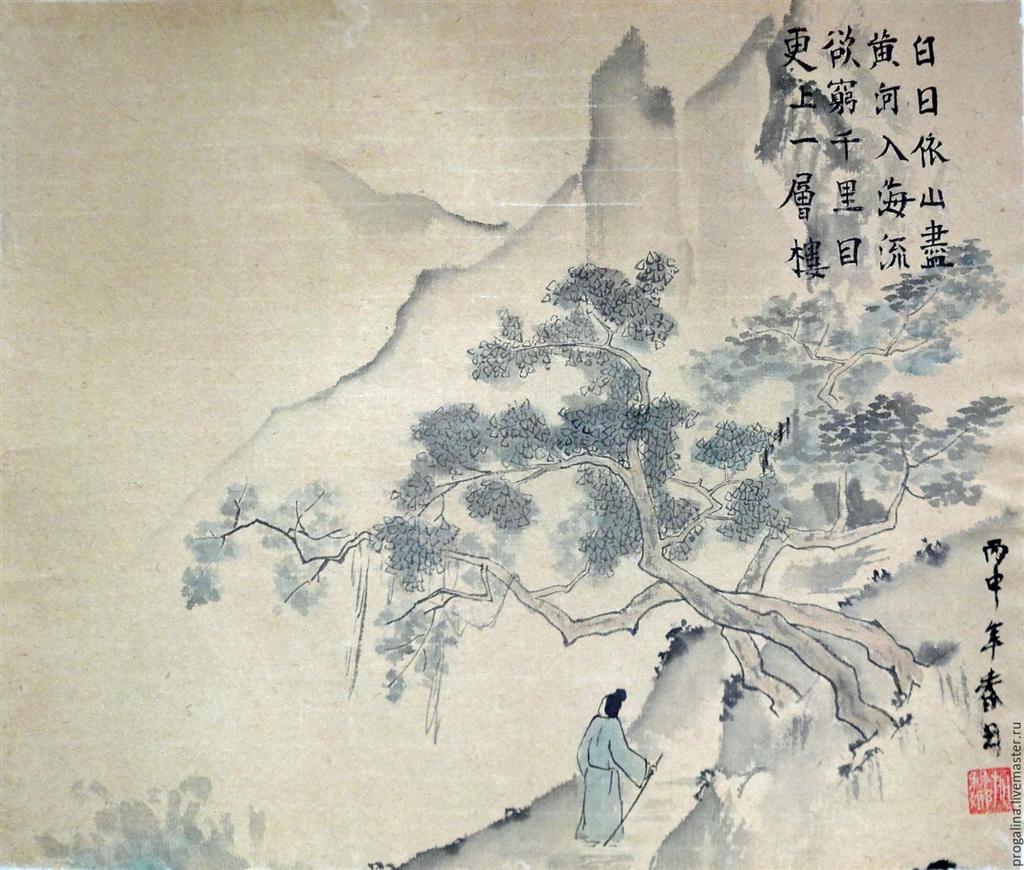 白日依山盡
黄河入海流
欲窮千里目
更上一層樓
丙申年春
progalina.livemaster.ru